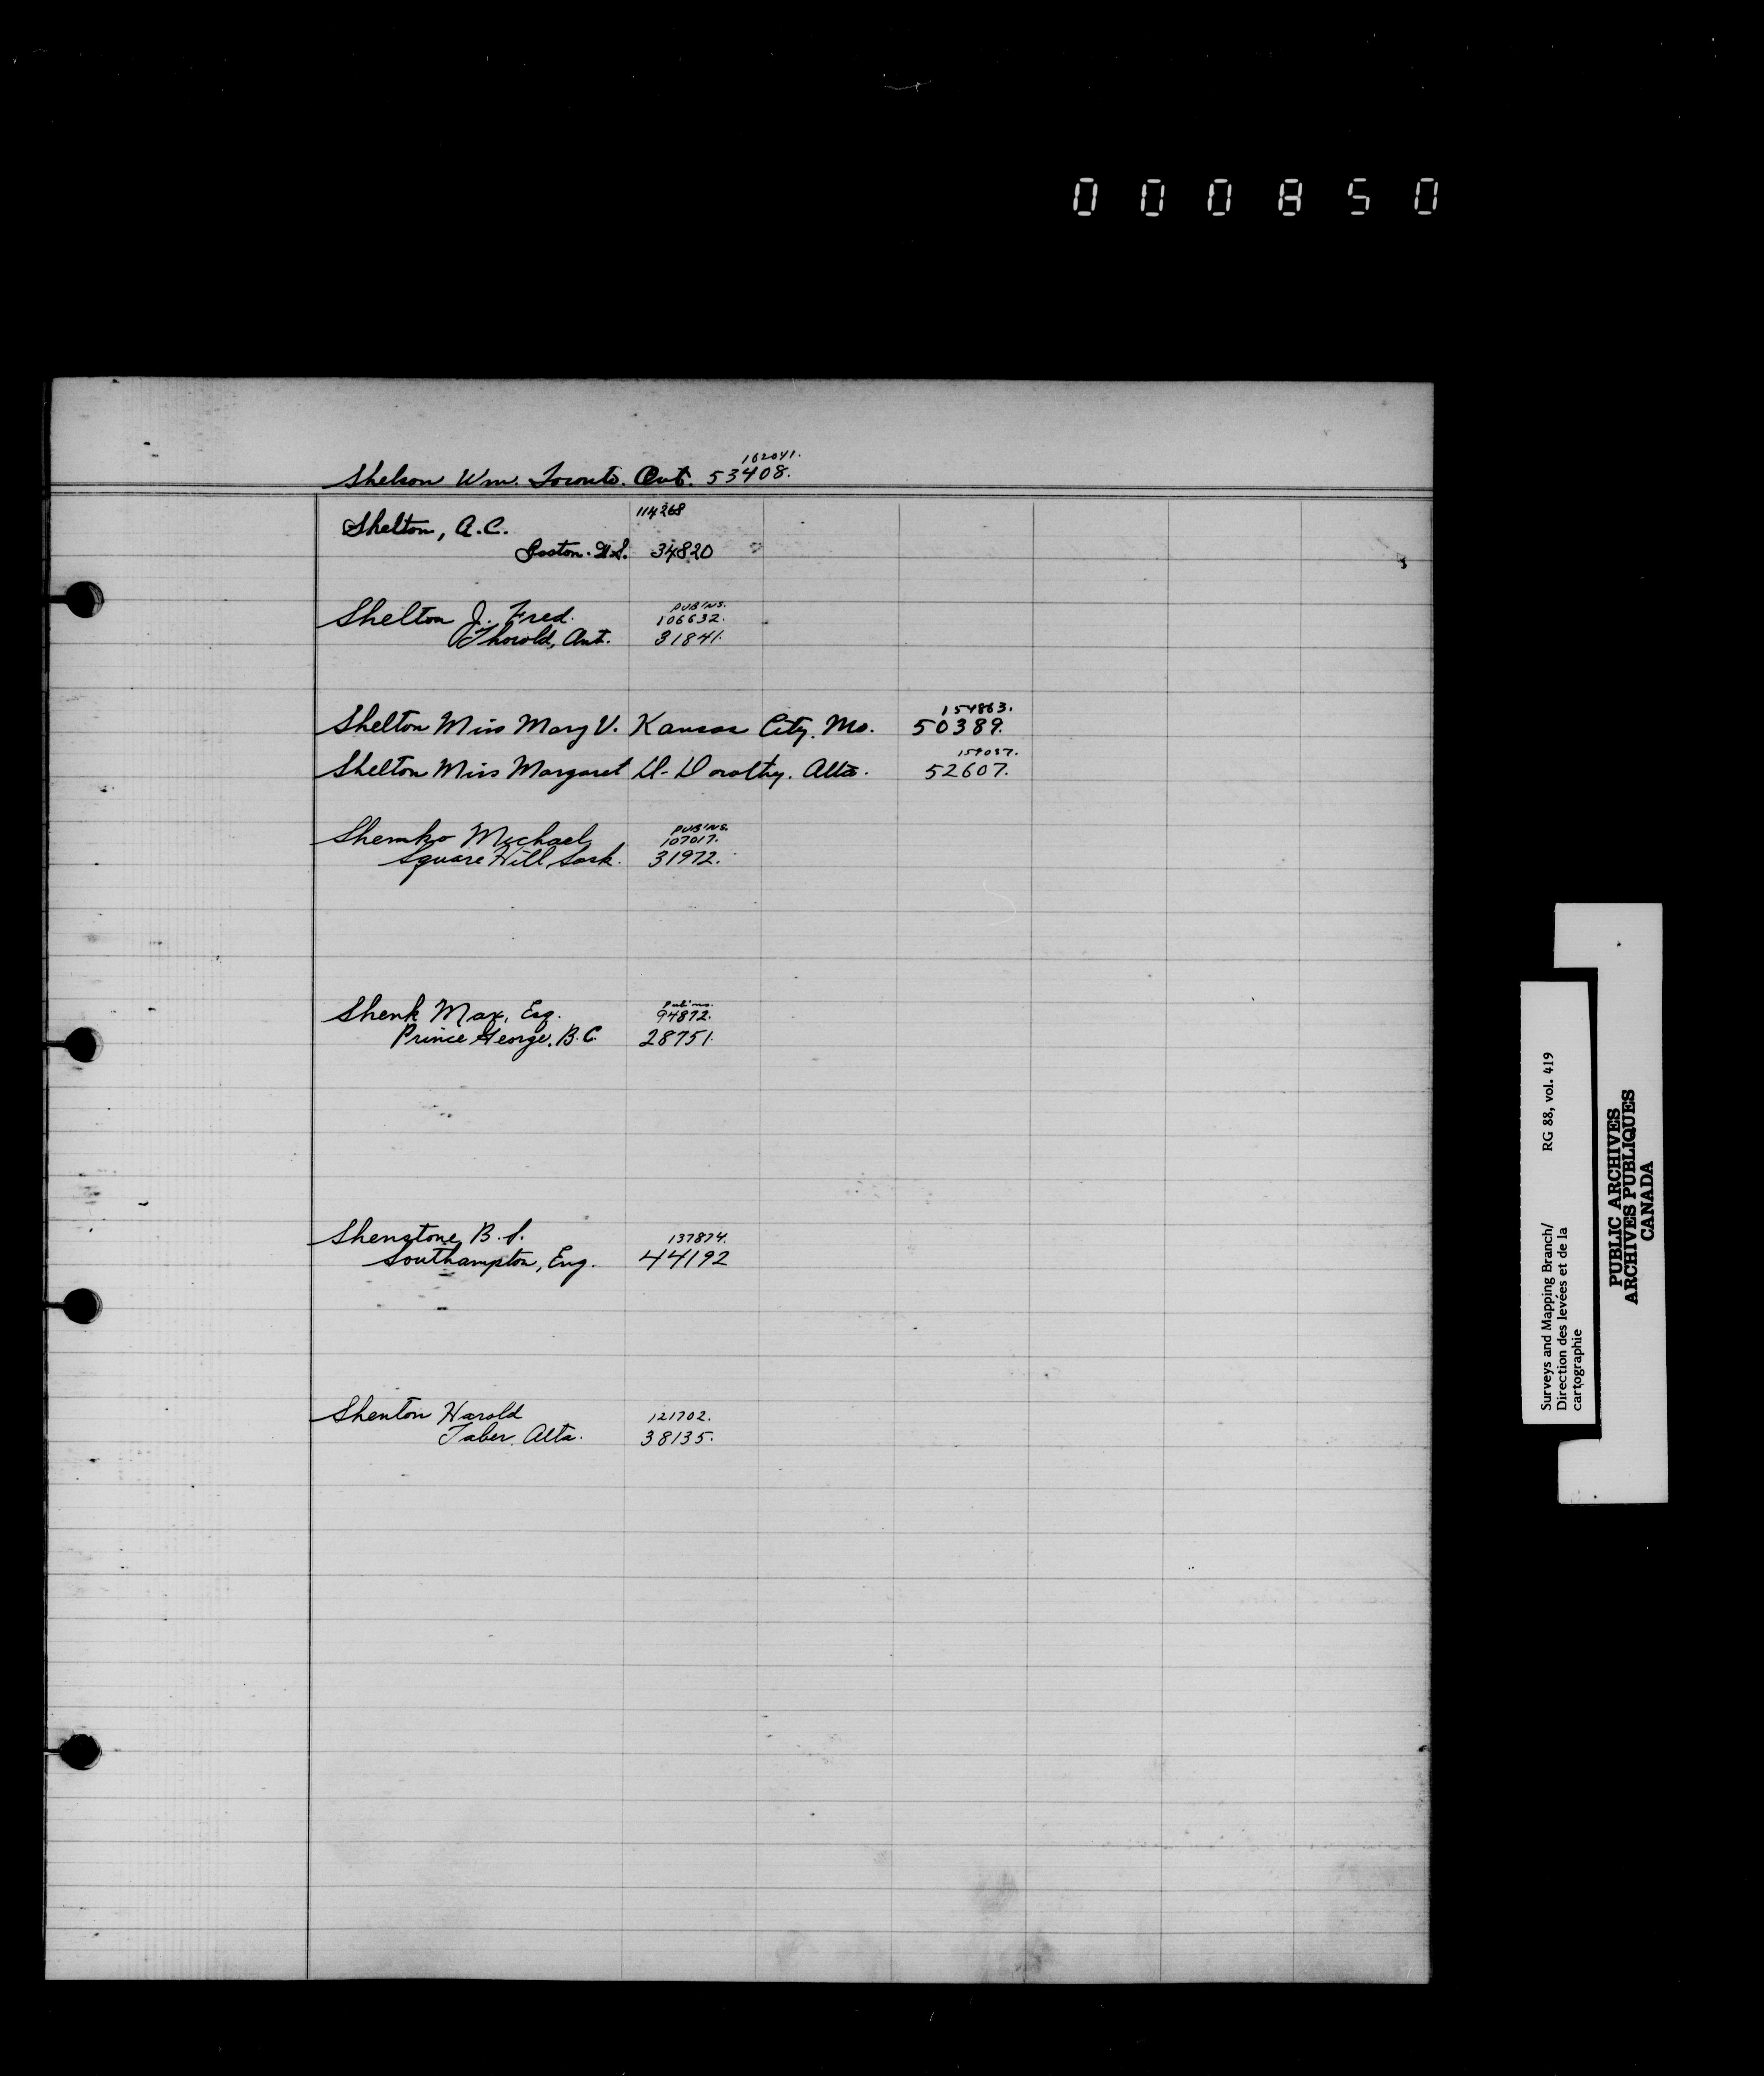 000850
162041.
Shelson Wm. Toronto. Ont. 53408.
114268
Shelton, A.C.
34820
PUB'NS.
Shelton J. Fred. 106632.
Thorold, Ont. 31841.
154863.
Shelton Miss Mary V. Kansas City. Mo. 50389.
159037.
Shelton Miss Margaret D- Dorothy. Alta. 52607.
PUB'NS.
Shemko Michael 107017.
Square Hill, Sask. 31972.
Pub'ns.
Shenk Max, Esq. 94872.
Prince George, B.C. 28751.
Shenstone, B.S. 137874.
Southampton, Eng. 44192
Shenton Harold 121702.
Taber, Alta. 38135.
Surveys and Mapping Branch/ RG 88, vol. 419
Direction des levées et de la
cartographie
PUBLIC ARCHIVES
ARCHIVES PUBLIQUES
CANADA